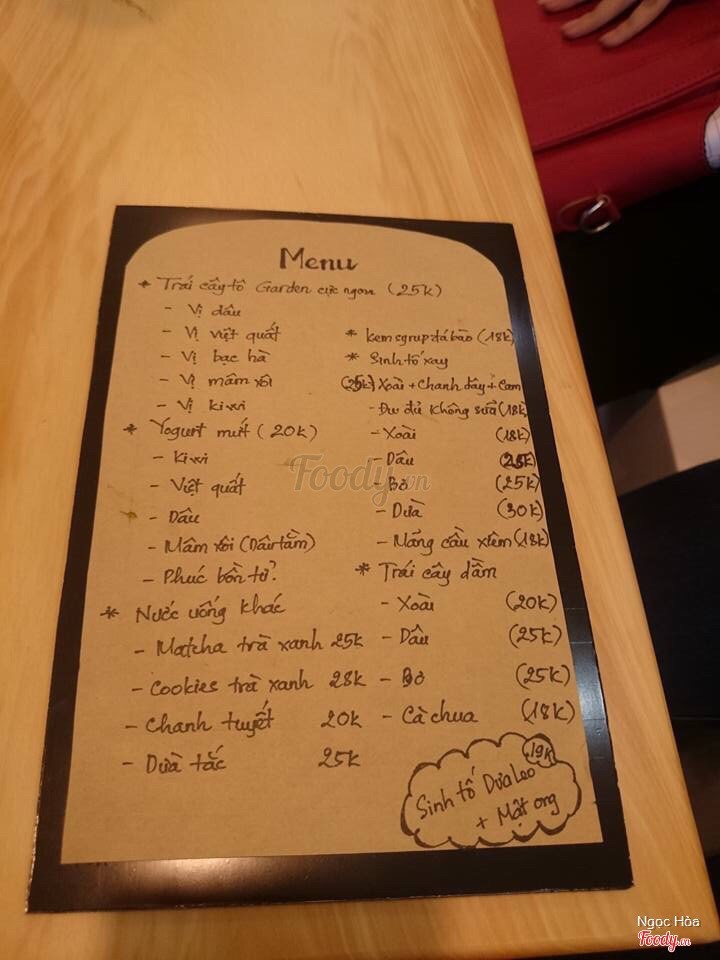 Menu
* Trái cây tô Garden cực ngon (25k)
- Vị dâu
- Vị việt quất
- Vị bạc hà
- Vị mâm xôi
- Vị kiwi
* Yogurt mứt (20k)
- Kiwi
- Việt quất
- Dâu
- Mâm xôi (Dâu tằm)
- Phúc bồn tử
* Nước uống khác
- Matcha trà xanh 25k
- Cookies trà xanh 28k
- Chanh tuyết 20k
- Dừa tắc 25k
* Kem syrup đá bào (18k)
* Sinh tố xay
(25k) Xoài + Chanh dây + Cam
- Đu đủ không sữa (18k)
- Xoài (18k)
- Dâu (25k)
- Bơ (25k)
- Dừa (30k)
- Mãng cầu xiêm (18k)
* Trái cây dầm
- Xoài (20k)
- Dâu (25k)
- Bơ (25k)
- Cà chua (18k)
19k
Sinh tố Dưa Leo
+ Mật ong
Foody.vn
Ngọc Hòa
Foody.vn